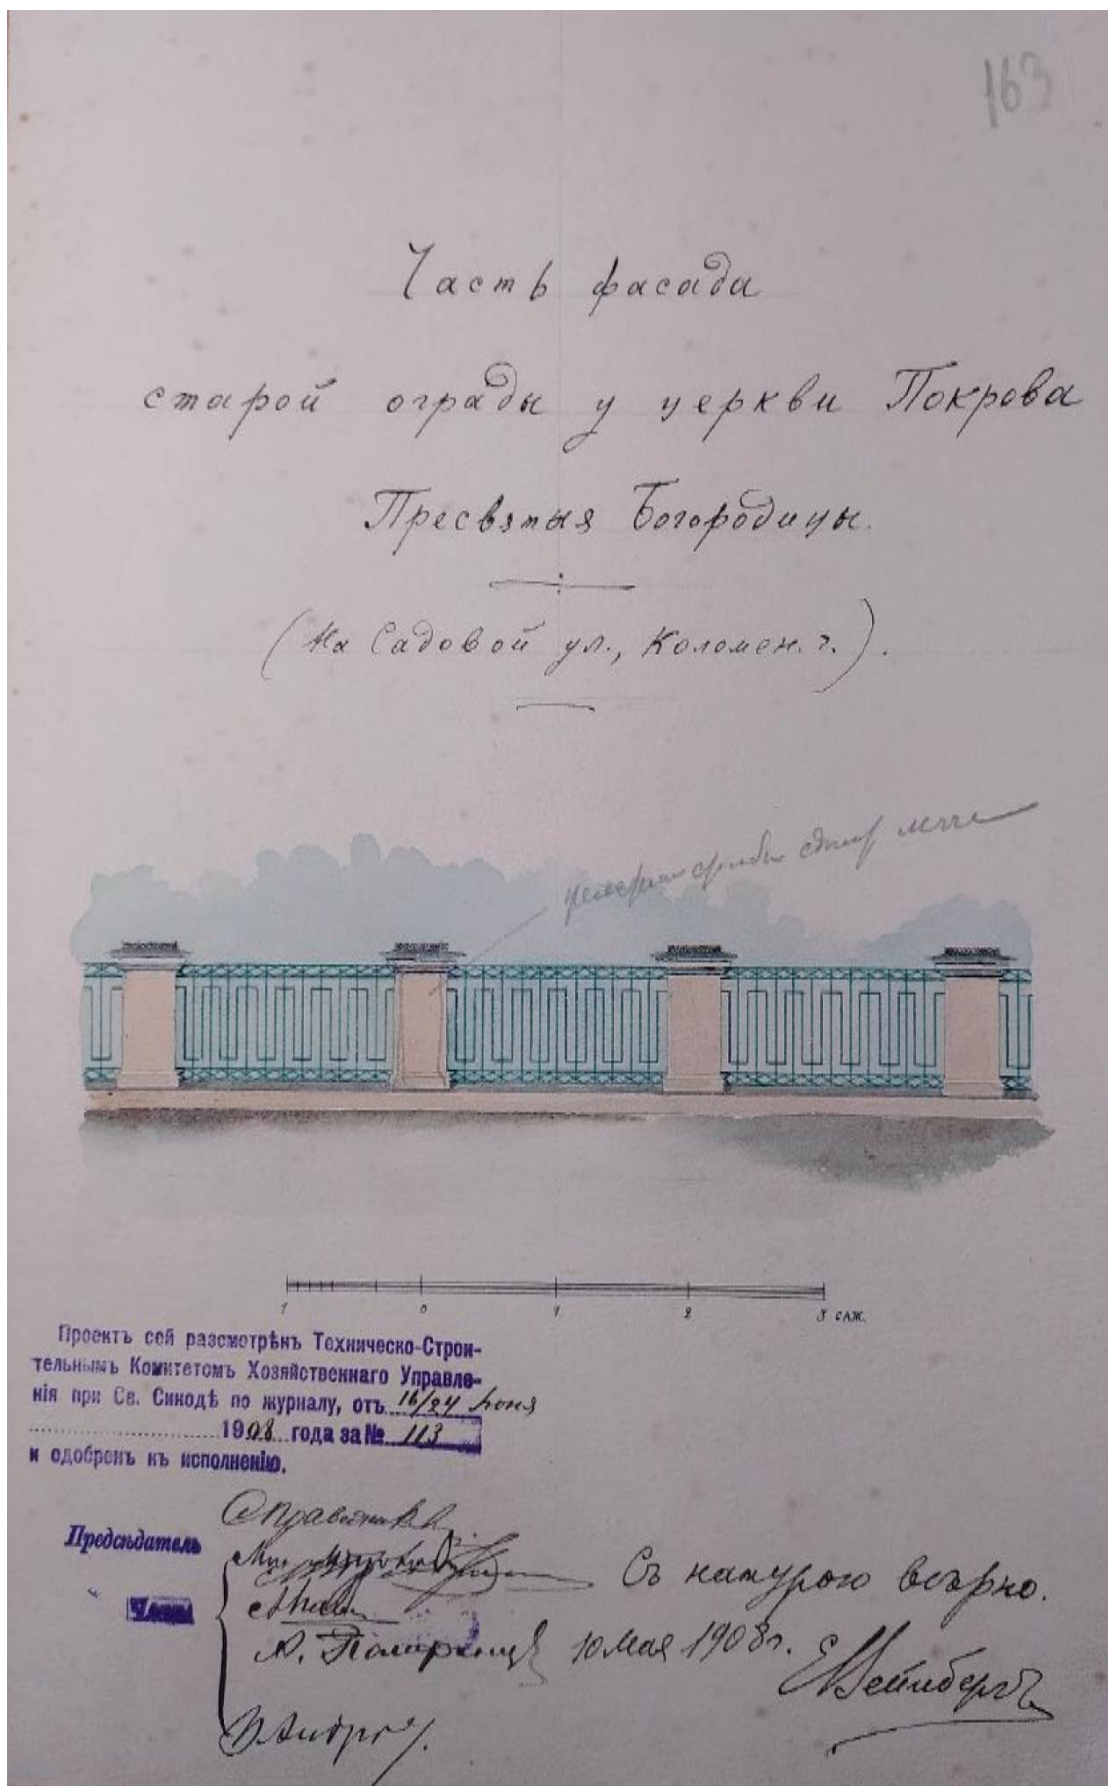 163
Часть фасада
старой ограды у церкви Покрова
Пресвятыя Богородицы.
(На Садовой ул., Коломен. ч.).
1 0 1 2 3 саж.
Проектъ сей разсмотрѣнъ Техническо-Строи-
тельнымъ Комитетомъ Хозяйственнаго Управле-
нія при Св. Синодѣ по журналу, отъ 16/24 Іюня
1908 года за № 113
и одобренъ къ исполненію.
Предсѣдатель
Члены
Съ натурою вѣрно.
10 Мая 1908 г.